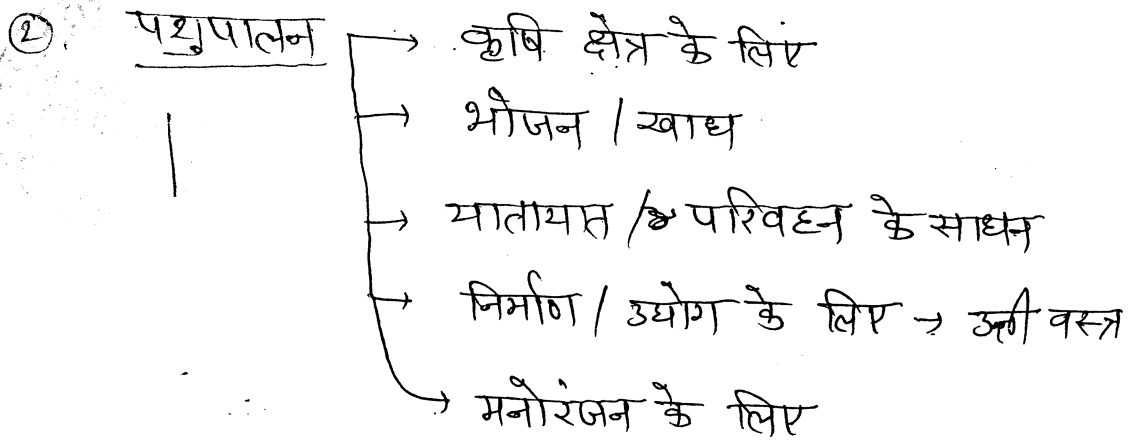 ② पशुपालन → कृषि क्षेत्र के लिए
→ भोजन / खाद्य
→ यातायात / परिवहन के साधन
→ निर्माण / उद्योग के लिए → ऊनी वस्त्र
→ मनोरंजन के लिए